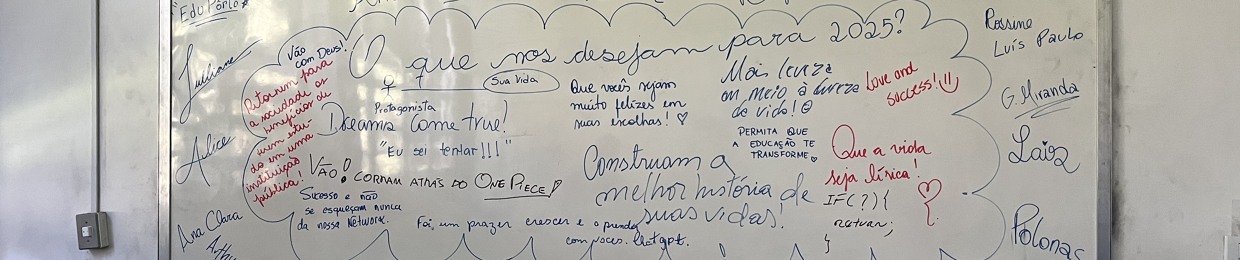 "Edu Porto"
Juliane
Alice
Ana Clara
Vão
com Deus!
Retornem para
a sociedade os
benefícios de
um estu-
do em uma
instituição
pública!
O que nos desejam para 2025?
Sua vida
Protagonista
Dreams Come true!
"Eu sei tentar!!!"
VÃO! CORRAM ATRÁS DO ONE PIECE!
Sucesso e não
se esqueçam nunca
da nossa Network.
Foi um prazer crescer e aprender
com voces. Chatgpt.
Que vocês sejam
muito felizes em
suas escolhas! ♡
Construam a
melhor história de
suas vidas!
Mais leveza
em meio à dureza
da vida! ☺
PERMITA QUE
A EDUCAÇÃO TE
TRANSFORME ♡
Love and
success!! ☺
Que a vida
seja lírica!
IF(?){
return;
}
Rossine
Luís Paulo
G. Miranda
Lais
Polonas